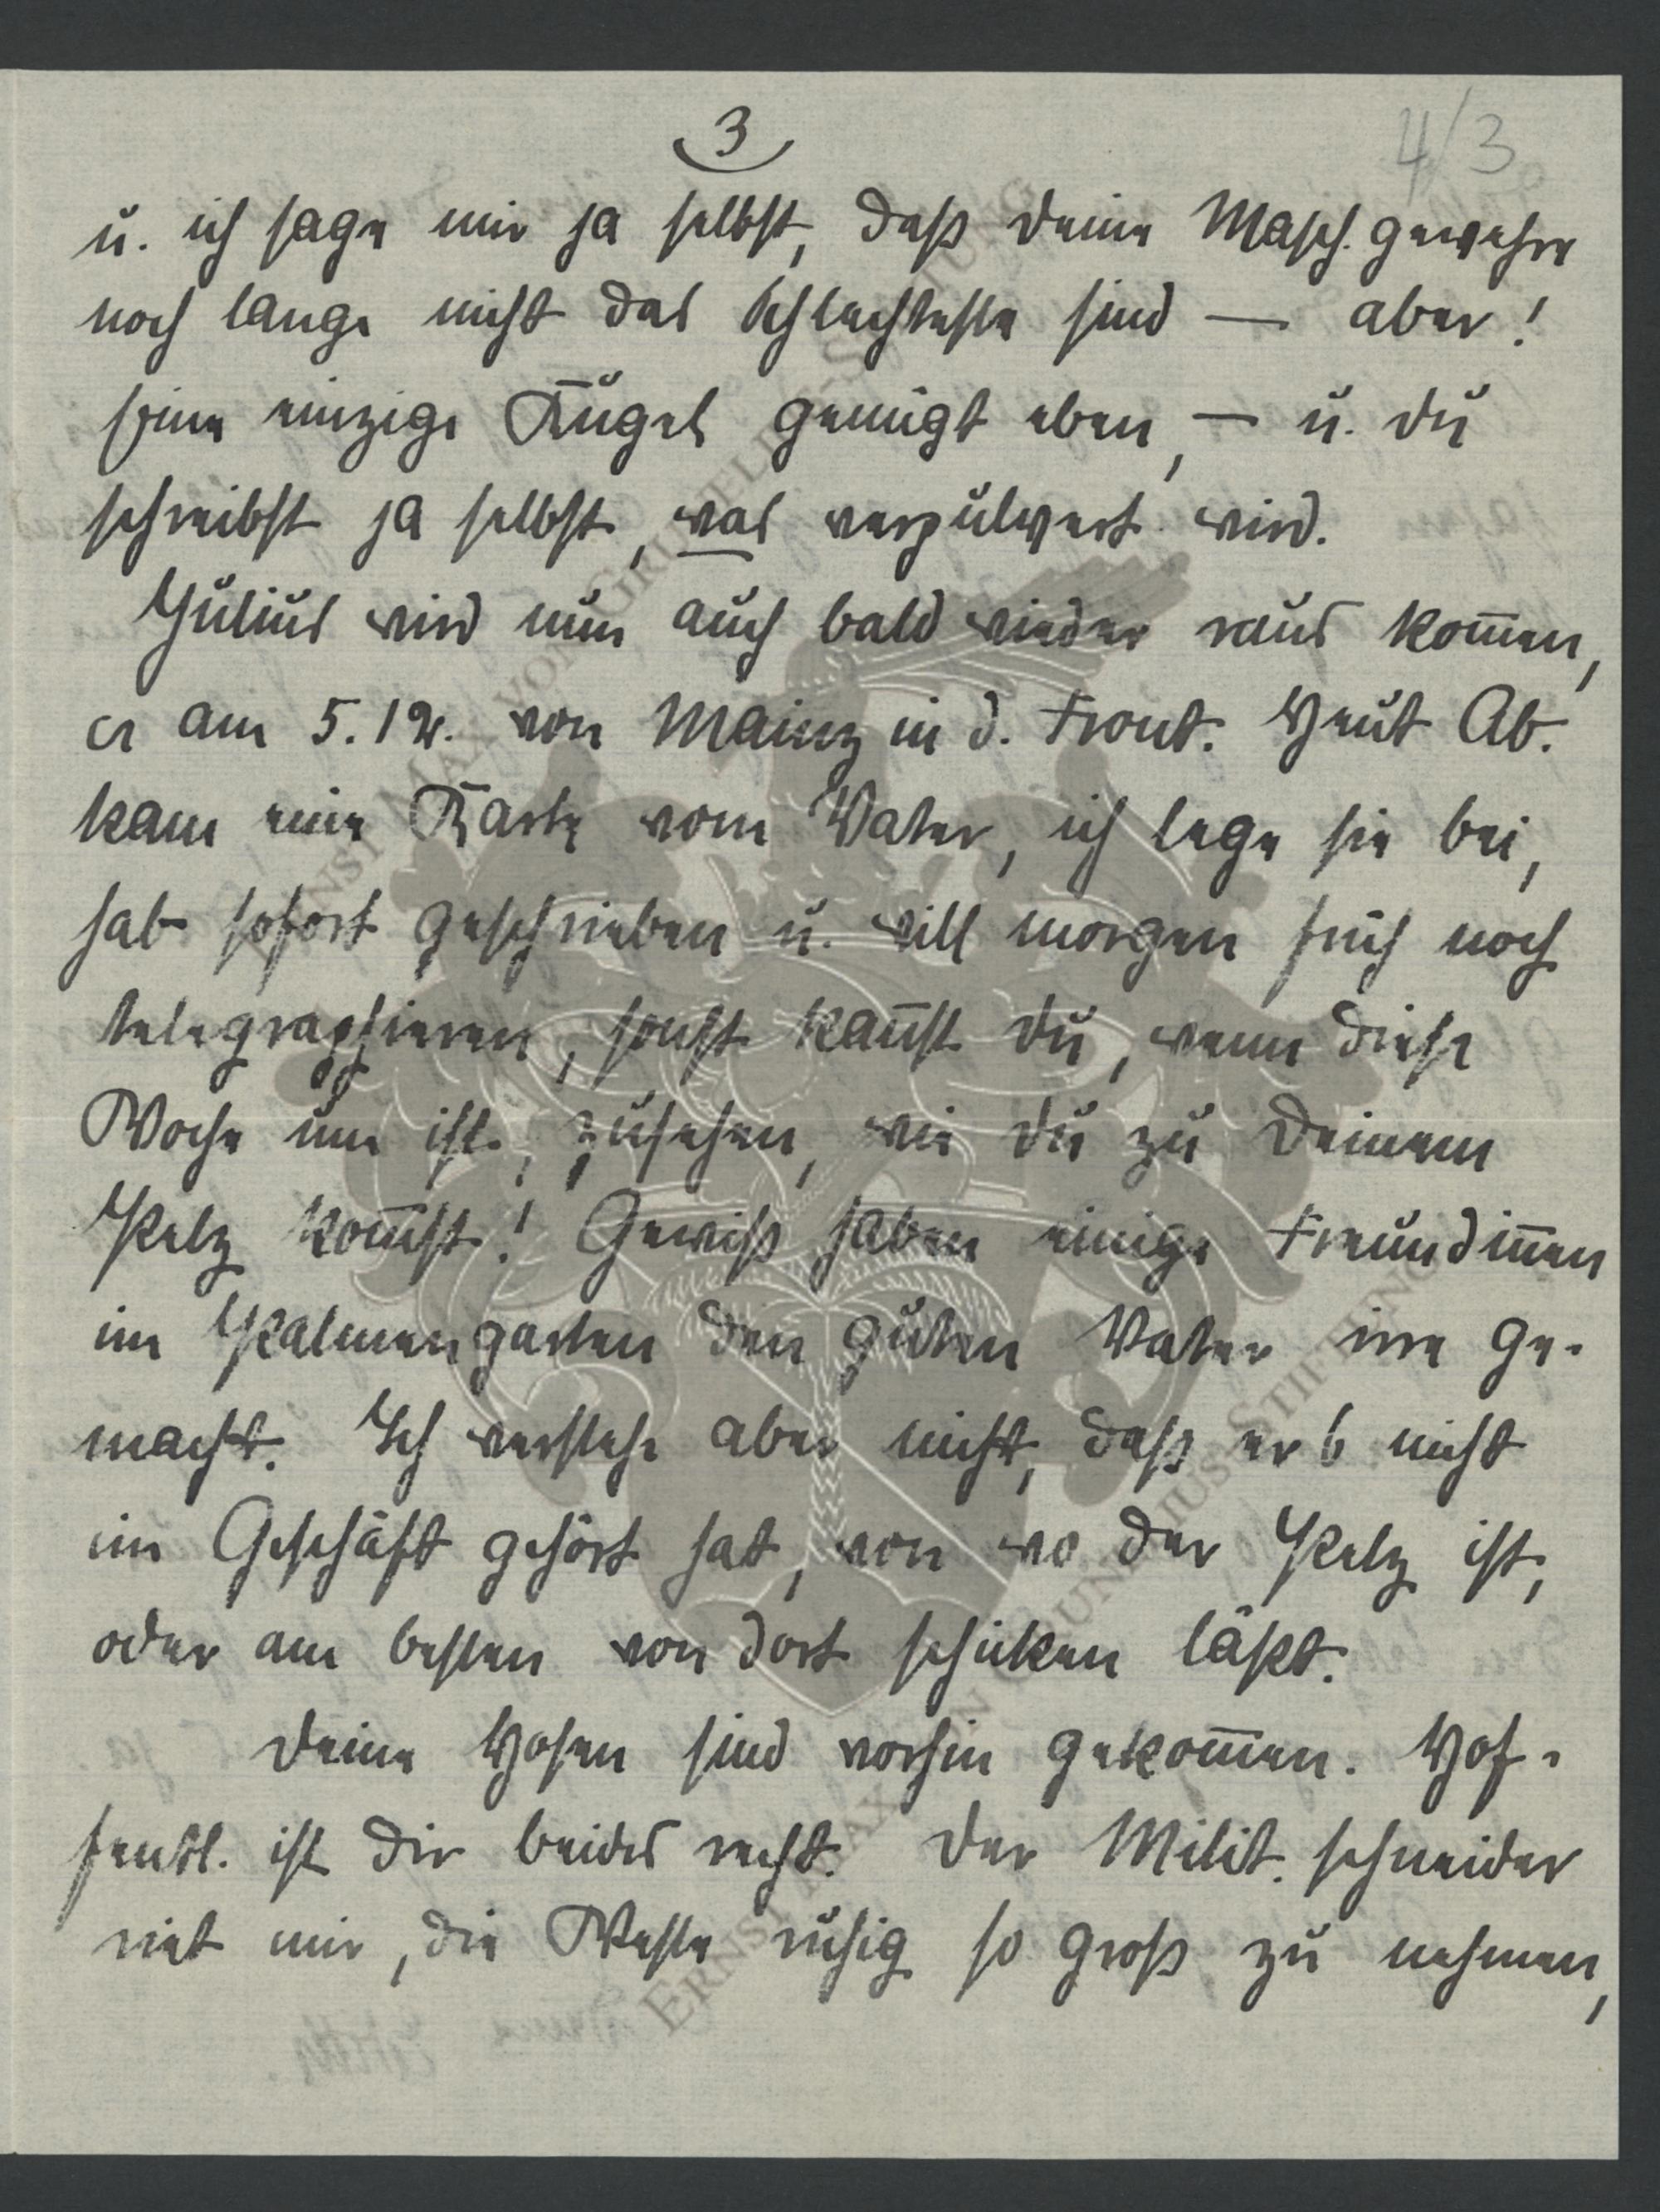 3
4/3
u. ich sage mir ja selbst, daß deine Masch. gewehre
noch lange nicht das Schlechteste sind — aber!
Eine einzige Kugel genügt eben, — u. du
schreibst ja selbst, was verpulvert wird.
Julius wird nun auch bald wieder raus kom̅en,
er am 5.12. von Mainz in d. Front. Heut Ab.
kam eine Karte vom Vater, ich lege sie bei,
hab sofort geschrieben u. will morgen früh noch
telegraphieren, sonst kan̅st du, wenn diese
Woche um ist, zusehen, wie du zu Deinem
Pelz kom̅st! Gewiß haben einige Freundin̅en
im Palmengarten den guten Vater irre ge-
macht. Ich verstehe aber nicht, daß er's nicht
im Geschäft gehört hat, von wo der Pelz ist,
oder am besten von dort schicken läßt.
Deine Hosen sind vorhin gekom̅en. Hof-
fentl. ist dir beides recht. Der Milit. schneider
riet mir, die Weste ruhig so groß zu nehmen,
ERNST MAX VON GRUNELIUS-STIFTUNG
ERNST MAX VON GRUNELIUS-STIFTUNG